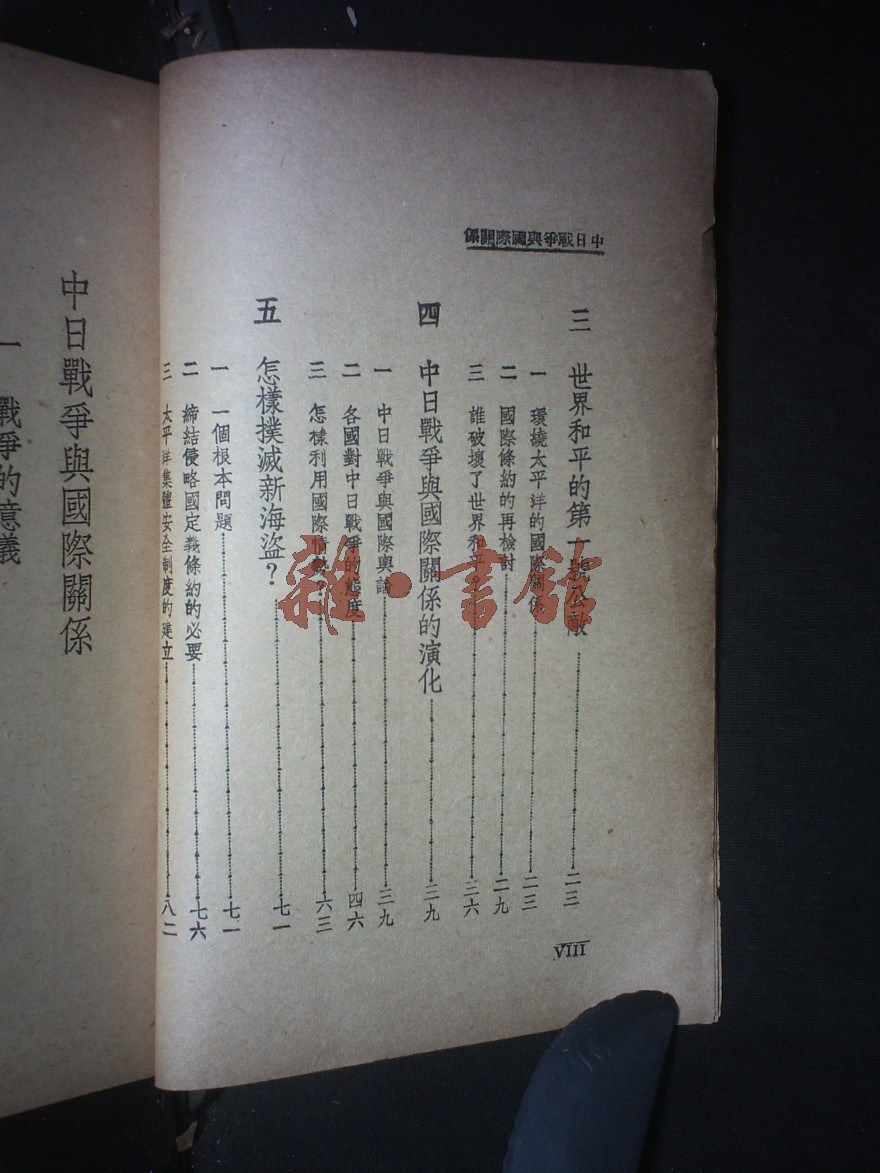 中日戰爭與國際關係
三　世界和平的第一號公敵……二三
一　環繞太平洋的國際關係……二三
二　國際條約的再檢討……二九
三　誰破壞了世界和平……三六
四　中日戰爭與國際關係的演化……三九
一　中日戰爭與國際輿論……三九
二　各國對中日戰爭的態度……四六
三　怎樣利用國際情勢……六三
五　怎樣撲滅新海盜？……七一
一　一個根本問題……七一
二　締結侵略國定義條約的必要……七六
三　太平洋集體安全制度的建立……八二
VIII
中日戰爭與國際關係
一　戰爭的意義
雜·書館